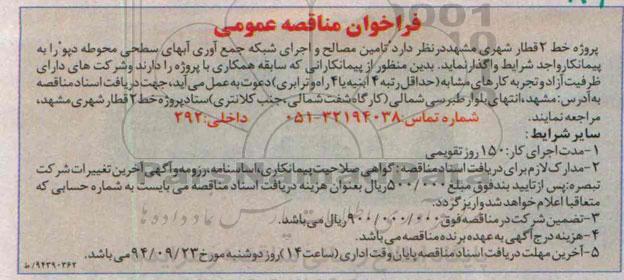 فراخوان مناقصه عمومی
پروژه خط ۲ قطار شهری مشهد در نظر دارد "تامین مصالح و اجرای شبکه جمع آوری آبهای سطحی محوطه دپو" را به
پیمانکار واجد شرایط واگذار نماید. بدین منظور از پیمانکارانی که سابقه همکاری با پروژه را دارند و شرکت های دارای
ظرفیت آزاد و تجربه کارهای مشابه (حداقل رتبه ۴ ابنیه یا ۴ راه و ترابری) دعوت به عمل می آید، جهت دریافت اسناد مناقصه
به آدرس: مشهد، انتهای بلوار طبرسی شمالی (کارگاه شفت شمالی، جنب کلانتری) ستاد پروژه خط ۲ قطار شهری مشهد،
مراجعه نمایند. شماره تماس: ۳۲۱۹۴۰۳۸-۰۵۱ داخلی: ۲۹۲
سایر شرایط:
۱- مدت اجرای کار: ۱۵۰ روز تقویمی
۲- مدارک لازم برای دریافت اسناد مناقصه: گواهی صلاحیت پیمانکاری، اساسنامه، رزومه و آگهی آخرین تغییرات شرکت
تبصره: پس از تایید بند فوق مبلغ ۵۰۰/۰۰۰ ریال بعنوان هزینه دریافت اسناد مناقصه می بایست به شماره حسابی که
متعاقبا اعلام خواهد شد واریز گردد.
۳- تضمین شرکت در مناقصه فوق ۹۰۰/۰۰۰/۰۰۰ ریال می باشد.
۴- هزینه درج آگهی به عهده برنده مناقصه می باشد.
۵- آخرین مهلت دریافت اسناد مناقصه پایان وقت اداری (ساعت ۱۴) روز دوشنبه مورخ ۹۴/۰۹/۲۳ می باشد.
۹۴۳۹۰۳۶۲/ط